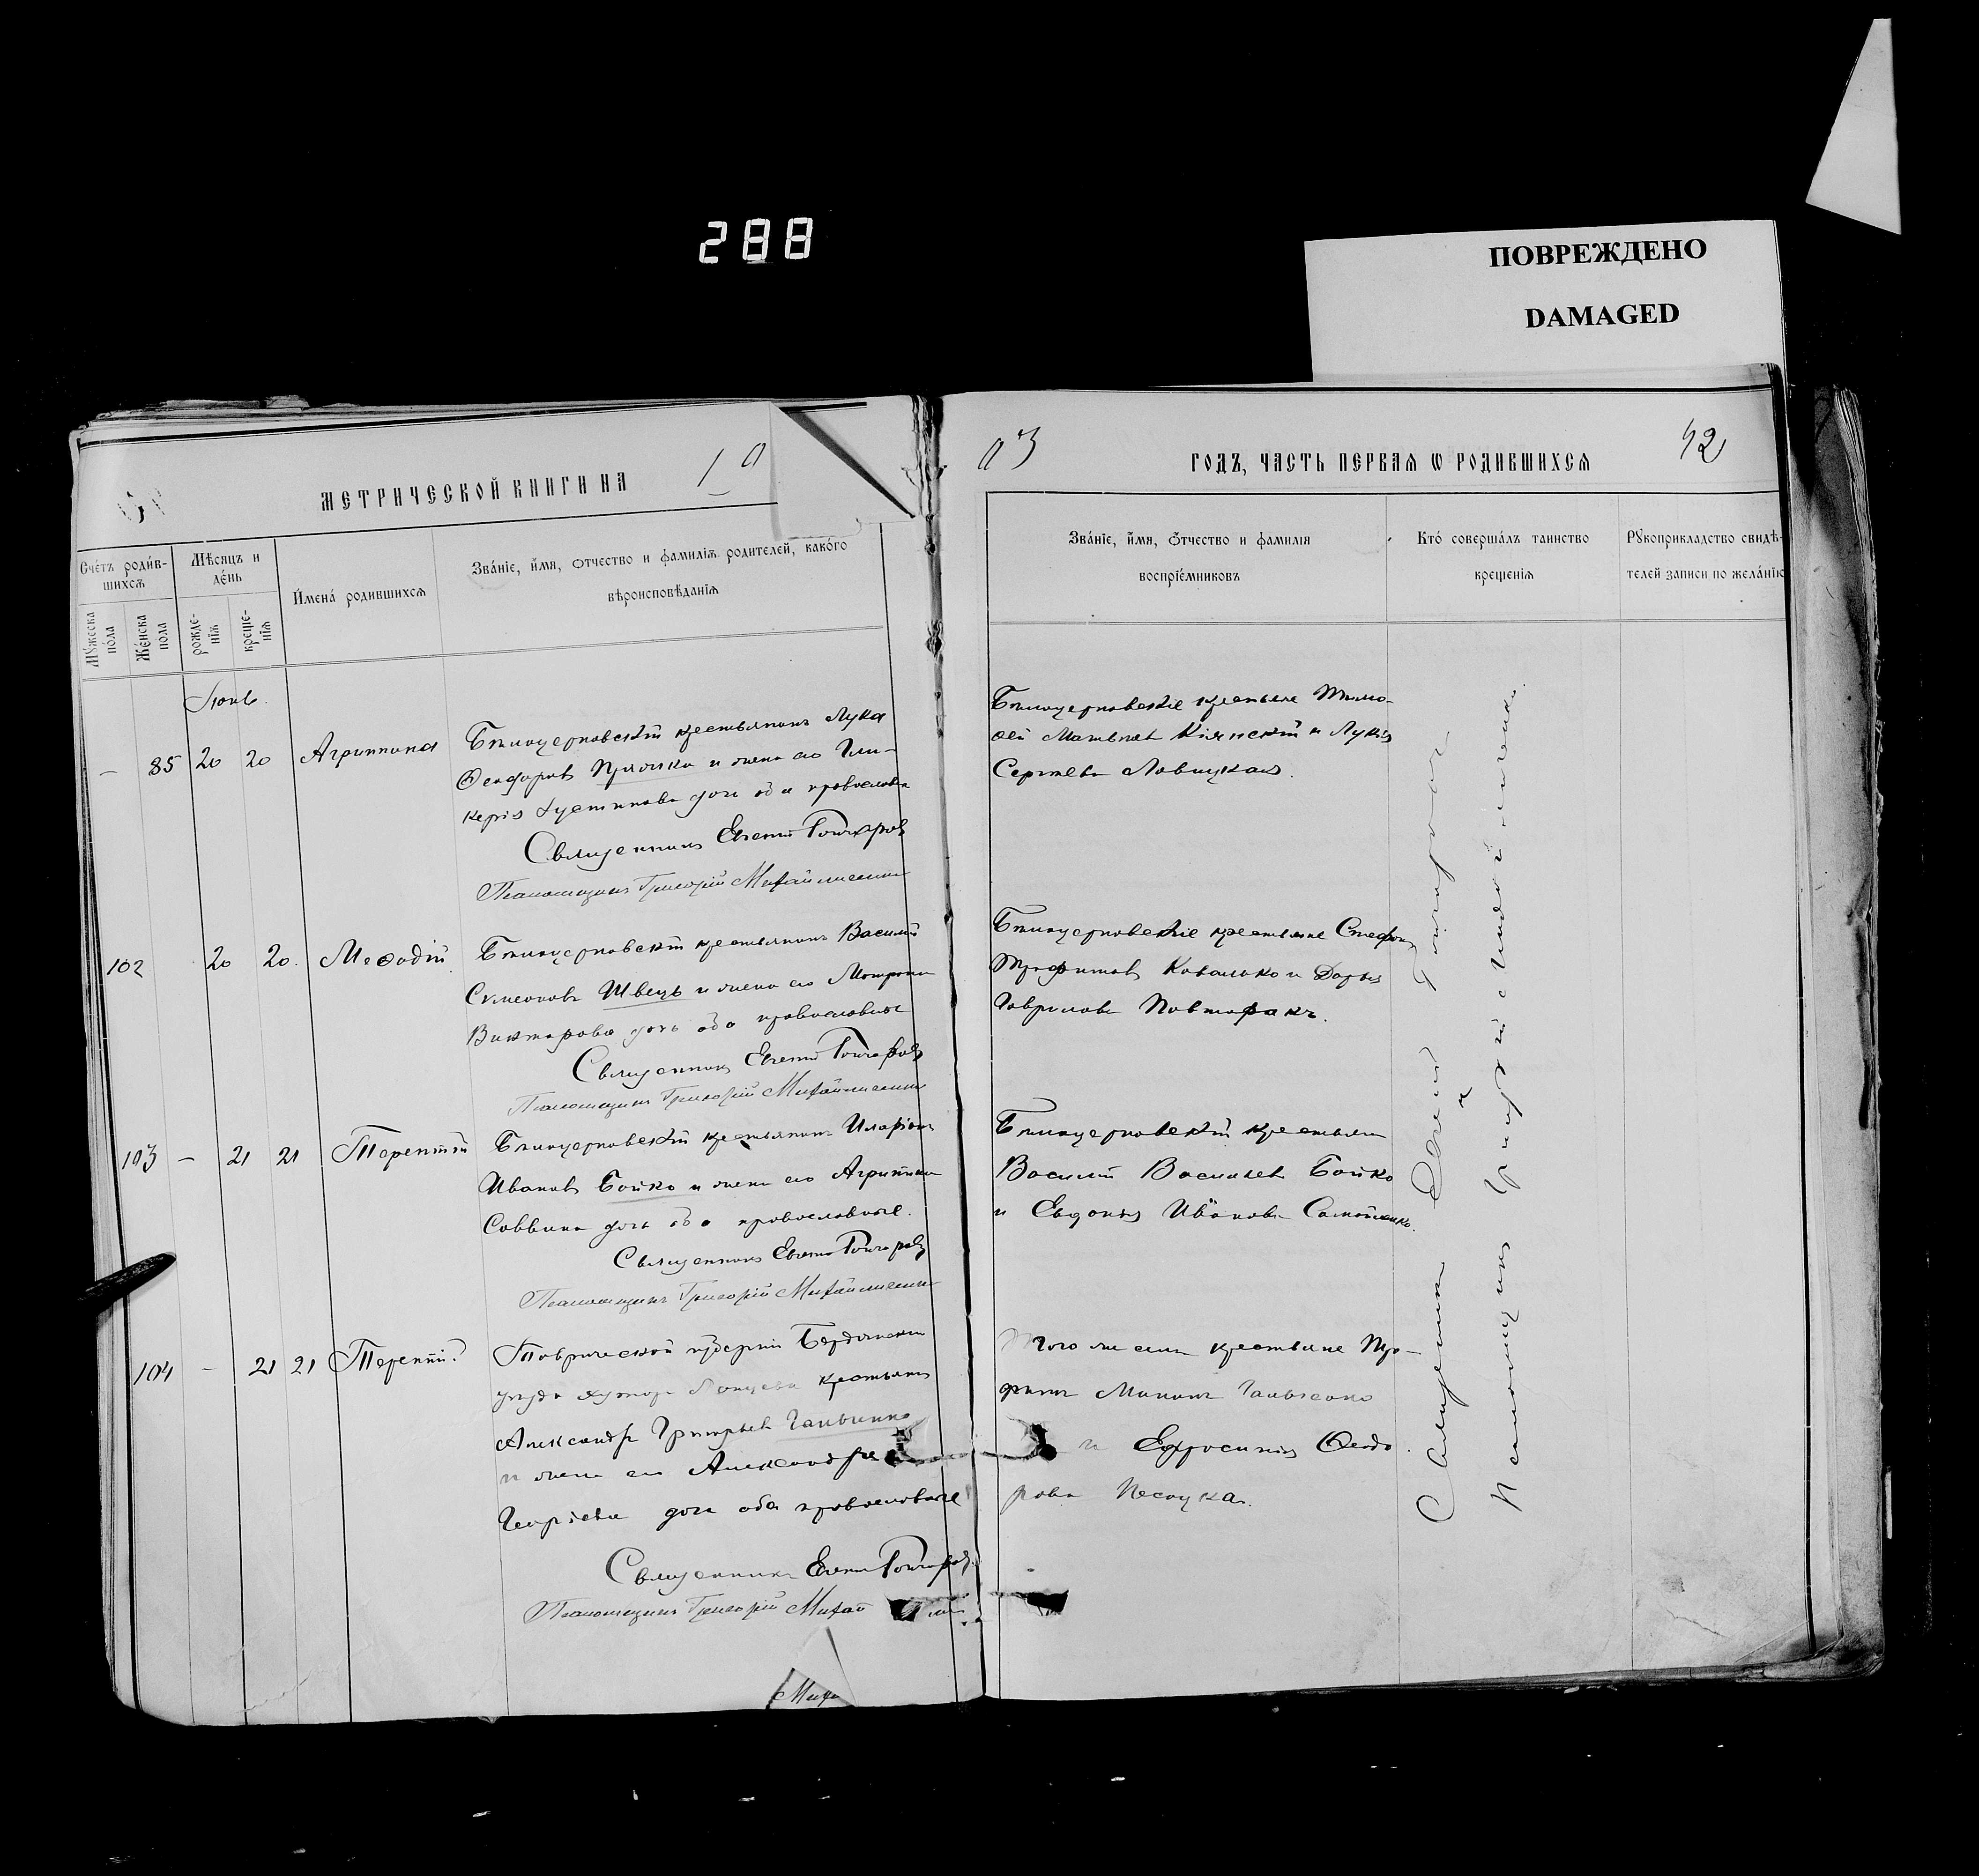 288
ПОВРЕЖДЕНО
DAMAGED
МЕТРИЧЕСКОЙ КНИГИ НА 19
03 ГОДЪ, ЧАСТЬ ПЕРВАѦ Ѡ РОДИВШИХСѦ 42
Счётъ родив-
шихсѧ
Мꙋжеска
пола
Женска
пола
Мѣсѧцъ и
день
рожде-
нїѧ
креще-
нїѧ
Имена родившихсѧ
Званїе, имѧ, ѿчество и фамилїѧ родителей, какого
вѣроисповѣданїѧ
Званїе, имѧ, ѿчество и фамилїѧ
воспрїемниковъ
Кто совершалъ таинство
крещенїѧ
Рꙋкоприкладство свидѣ-
телей записи по желанїю
Іюнь
— 85 20 20 Агриппина
Бѣлоцерковскій крестьянинъ Лука
Ѳеодоровъ и жена его Гли-
керія Іустинова дочь оба православн
Священникъ Евгеній Гончаровъ
Псаломщикъ Григорій
Бѣлоцерковскіе крестьяне Тимо-
ѳей Матвѣевъ Кіянскій и Лукія
Сергѣева Лавицкая.
102 20 20. Меѳодій
Бѣлоцерковскій крестьянинъ Василій
Симеоновъ Швецъ и жена его Матрона
Викторова дочь оба православные
Священникъ Евгеній Гончаровъ
Псаломщикъ Григорій
Бѣлоцерковскіе крестьяне Стефанъ
Трофимовъ Ковалько и Дарья
Гаврилова Повторакъ.
103 — 21 21 Терентій
Бѣлоцерковскій крестьянинъ Иларіонъ
Ивановъ Бойко и жена его Агриппина
Саввина дочь оба православные.
Священникъ Евгеній Гончаровъ
Псаломщикъ Григорій
Бѣлоцерковскій крестьян
Василій Васильевъ Бойко
и Евдокія Иванова Самойленко.
104 — 21 21 Терентій.
Таврической губерніи Бердянскаго
уѣзда хутора крестьянинъ
Александръ Григорьевъ Гальченко
и жена его Александра
Георгіева дочь оба православные
Священникъ Евгеній Гончаровъ
Псаломщикъ Григорій
Того же села крестьяне Тро-
фимъ Мининъ Гальченко
и Ефросинія Ѳеодо
рова Песоцкая.
Священникъ Евгеній Гончаровъ
и
Псаломщикъ Григорій
Миха